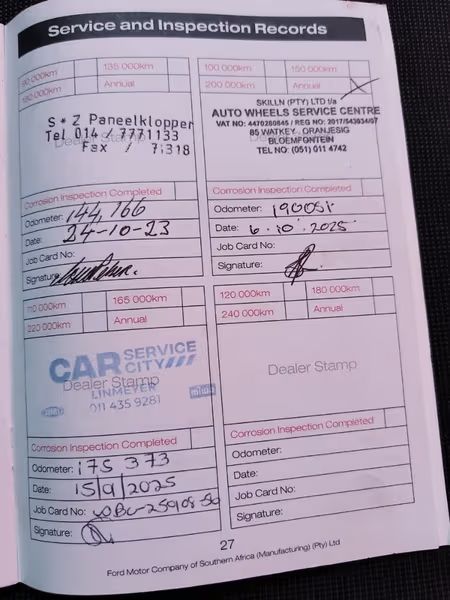 Service and Inspection Records
90 000km
135 000km
180 000km
Annual
S * Z Paneelklopper
Tel 014 / 7771133
Fax / 7:318
Corrosion Inspection Completed
Odometer: 144,166
Date: 24-10-23
Job Card No:
Signature:
100 000km
150 000km
200 000km
Annual
SKILLN (PTY) LTD t/a
AUTO WHEELS SERVICE CENTRE
VAT NO: 4470280845 / REG NO: 2017/543034/07
85 WATKEY, ORANJESIG
BLOEMFONTEIN
TEL NO: (051) 011 4742
Corrosion Inspection Completed
Odometer: 190051
Date: 6.10.2025
Job Card No:
Signature:
110 000km
165 000km
220 000km
Annual
CAR SERVICE CITY
Dealer Stamp
LINMEYER
011 435 9281
midas
Corrosion Inspection Completed
Odometer: 175 373
Date: 15/9/2025
Job Card No:
Signature:
120 000km
180 000km
240 000km
Annual
Dealer Stamp
Corrosion Inspection Completed
Odometer:
Date:
Job Card No:
Signature:
27
Ford Motor Company of Southern Africa (Manufacturing) (Pty) Ltd